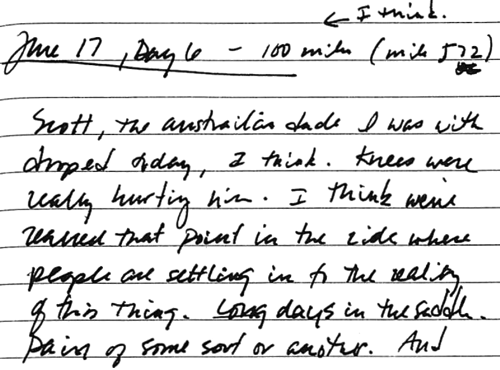 ← I think.
June 17, Day 6 - 100 miles (mile 522)
Scott, the austrailian dude I was with
droped today, I think. Knees were
really hurting him. I think we're
reached that point in the ride where
people are settling in to the reality
of this thing. Long days in the saddle.
Pain of some sort or another. And